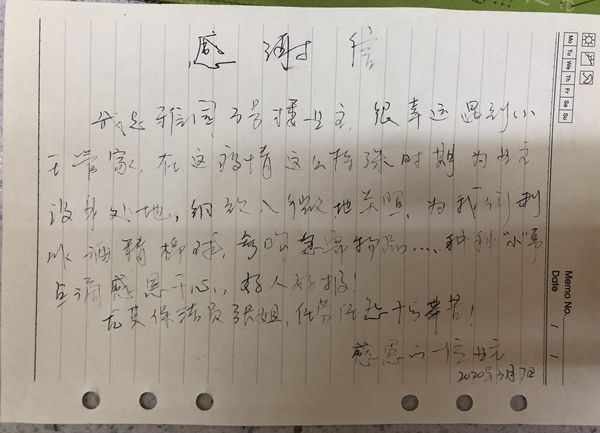 感谢信
我是雅园3号楼业主,很幸运遇到小
王管家,在这疫情这么特殊时期为业主
设身处地,细致入微地关照,为我们制
每 急需物品....种种"小"事
点滴感恩于心,好人好报!
尤其保洁员张姐,任劳任怨十分辛苦!
感恩的一位业主
2020年3月7日
Mo Tu We Th Fr Sa Su
Memo No.
Date / /